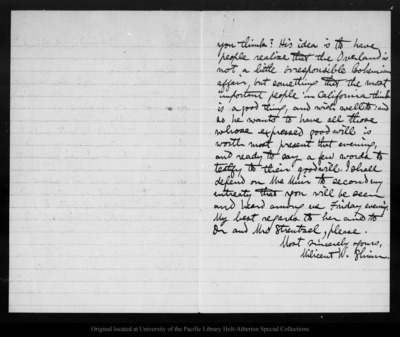 you think? His idea is to have
people realize that the Overland is
not a little irresponsible bohemian
affair, but something that the most
important people in California think
is a good thing, and wish well to: and
so he wants to have all those
whose expressed good will is
worth most present that evening,
and ready to say a few words to
testify to their good will. I shall
depend on Mrs Muir to second my
entreaty that you will be seen
and heard among us Friday evening.
My best regards to her and to
Dr and Mrs Strentzel, please.
Most sincerely yours,
Milicent W. Shinn.
Original located at University of the Pacific Library Holt-Atherton Special Collections